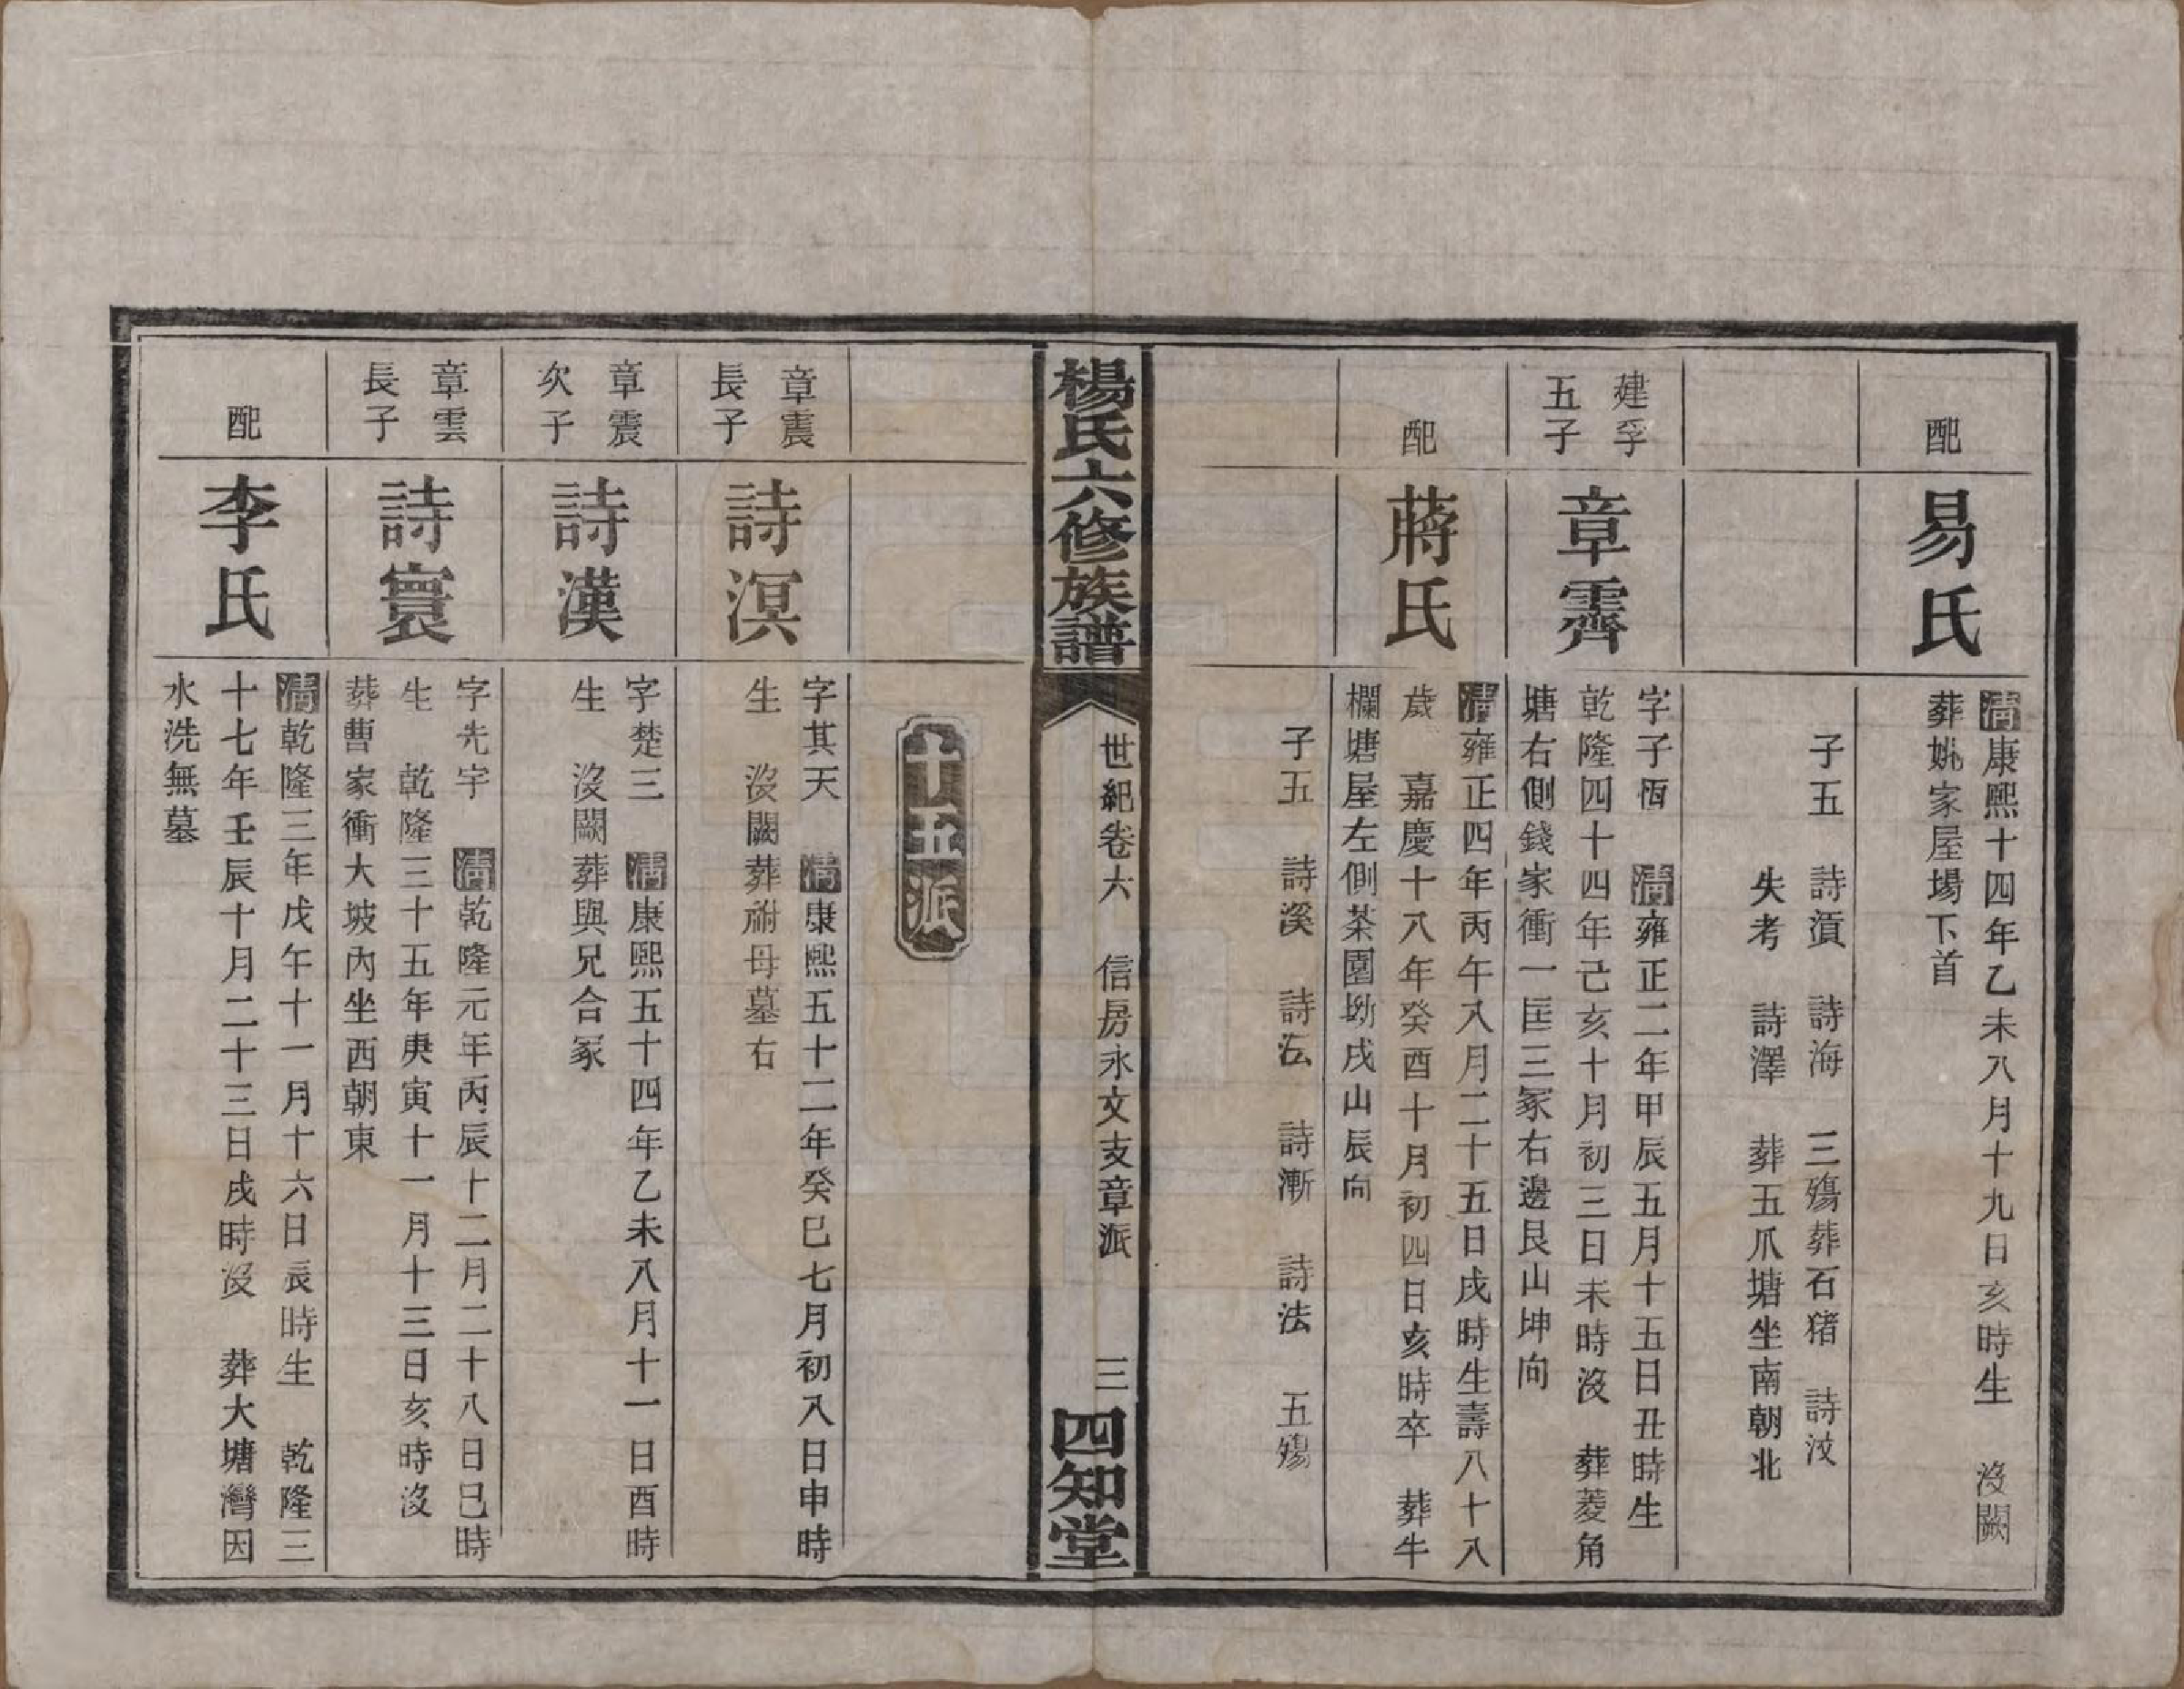 配
易氏
清康熙十四年乙未八月十九日亥時生 沒闕
葬姚家屋場下首
子五 詩湏 詩海 三殤葬石猪 詩汶
失考 詩澤 葬五爪塘坐南朝北
建孚
五子
章霽
字子恆 清雍正二年甲辰五月十五日丑時生
乾隆四十四年己亥十月初三日未時沒 葬菱角
塘右側錢家衝一匡三冢右邊艮山坤向
配
蔣氏
清雍正四年丙午八月二十五日戌時生壽八十八
歲 嘉慶十八年癸酉十月初四日亥時卒 葬牛
欄塘屋左側茶園坳戌山辰向
子五 詩溪 詩汯 詩漸 詩法 五殤
楊氏六修族譜
世紀卷六 信房永文支章派 三
四知堂
十五派
章震
長子
詩溟
字其天 清康熙五十二年癸巳七月初八日申時
生 沒闕葬祔母墓右
章震
次子
詩漢
字楚三 清康熙五十四年乙未八月十一日酉時
生 沒闕葬與兄合冢
章雲
長子
詩寰
字先宇 清乾隆元年丙辰十二月二十八日巳時
生 乾隆三十五年庚寅十一月十三日亥時沒
葬曹家衝大坡內坐西朝東
配
李氏
清乾隆三年戊午十一月十六日辰時生 乾隆三
十七年壬辰十月二十三日戌時沒 葬大塘灣因
水洗無墓